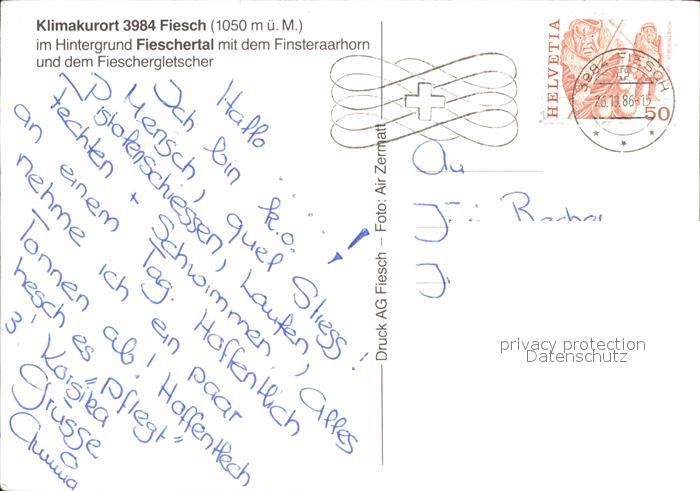 Klimakurort 3984 Fiesch (1050 m ü. M.)
im Hintergrund Fieschertal mit dem Finsteraarhorn
und dem Fieschergletscher
Hallo
Ich bin k.o. ... !
Mensch, quel Stress!
Pistolenschiessen, Laufen,
fechten + Schwimmen, alles
an einem Tag. Hoffentlich
nehme ich ein paar
Tonnen ab! Hoffentlech
hesch es "pflegt"
3! Korsika
Grüsse
Druck AG Fiesch – Foto: Air Zermatt
HELVETIA
50
3984 FIESCH
86-
privacy protection
Datenschutz